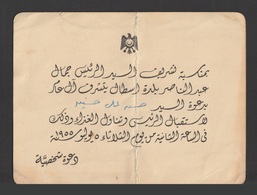 بمناسبة تشريف السيد الرئيس جمال
عبد الناصر بلدة اسطال يتشرف آل عامر
بدعوة السيد
لاستقبال الرئيس وتناول الغذاء وذلك
فى الساعة الثانية من يوم الثلاثاء ٥ يوليو ١٩٥٥
دعوة شخصية